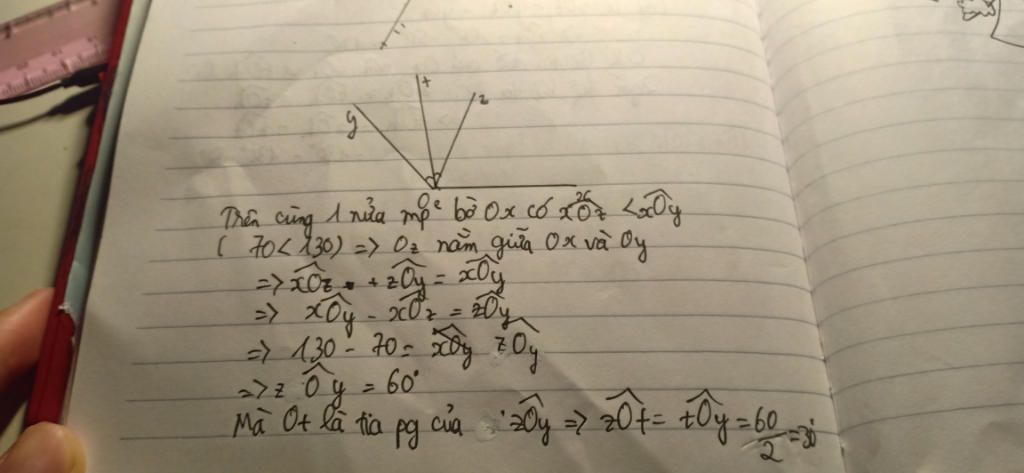 y
t
z
O
x
Trên cùng 1 nửa mp bờ Ox có xÔz < xÔy
( 70 < 130) => Oz nằm giữa Ox và Oy
=> xÔz + zÔy = xÔy
=> xÔy - xÔz = zÔy
=> 130 - 70 = zÔy
=> zÔy = 60°
Mà Ot là tia pg của zÔy => zÔt = tÔy = 60/2 = 30°